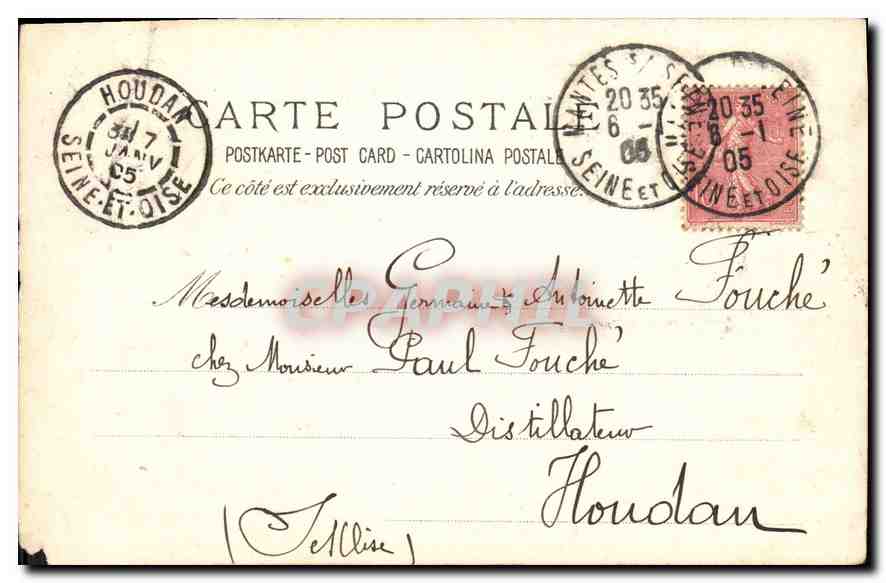 HOUDAN
7
JANV
05
SEINE-ET-OISE
CARTE POSTALE
POSTKARTE - POST CARD - CARTOLINA POSTALE
Ce côté est exclusivement réservé à l'adresse.
MANTES S/ SEINE
20 35
6 -1
05
SEINE ET OISE
20 35
6 -1
05
SEINE ET OISE
Mesdemoiselles Germaine & Antoinette Fouché
chez Monsieur Paul Fouché
Distillateur
Houdan
(S et Oise)
CPAPHIL